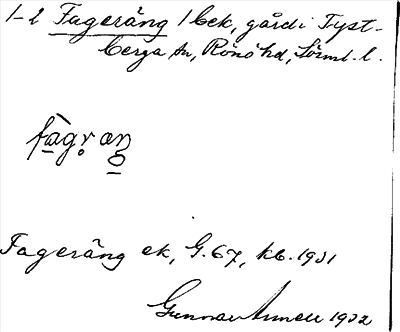 1-2 Fageräng 1bek, gård i Tyst-
berga sn, Rönö hd, Sörml. l.
fàgr æŋ
Fageräng ek, G. 67, kb. 1931
Gunnar 1932